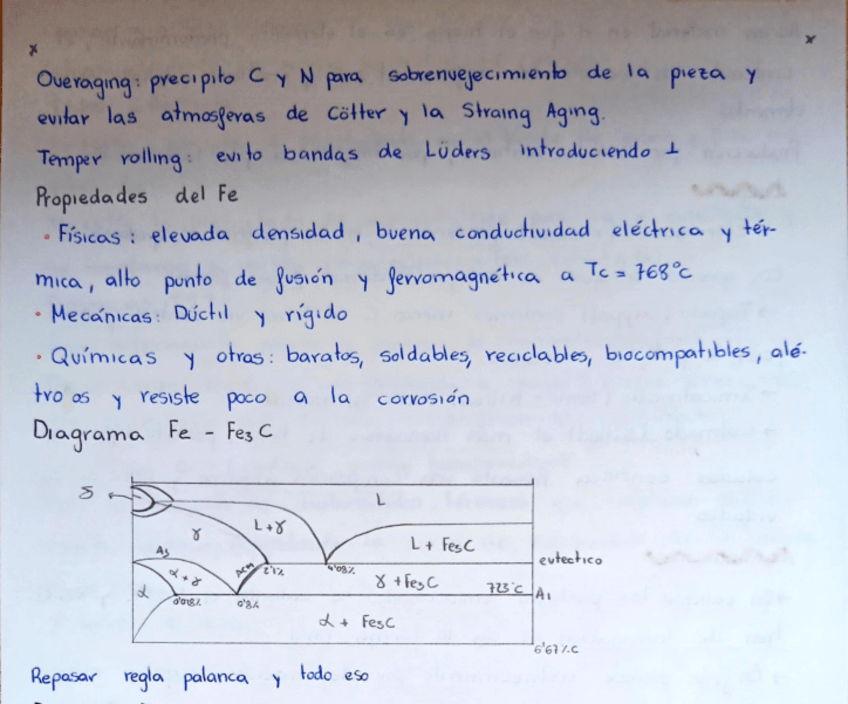 x x
Overaging: precipito C y N para sobrenvejecimiento de la pieza y
evitar las atmosferas de Cötter y la Straing Aging.
Temper rolling: evito bandas de Lüders introduciendo ⊥
Propiedades del Fe
• Físicas: elevada densidad, buena conductividad eléctrica y tér-
mica, alto punto de fusión y ferromagnética a Tc = 768°c
• Mecánicas: Dúctil y rígido
• Químicas y otras: baratos, soldables, reciclables, biocompatibles, alé-
y resiste poco a la corrosión
Diagrama Fe - Fe3C
δ
L
γ
L+γ
L + Fe3C
A3
Acm
2'1%
4'08%
eutectico
α + γ
γ + Fe3C
723°C
A1
α
0'018%
0'8%
α + Fe3C
6'67%C
Repasar regla palanca y todo eso